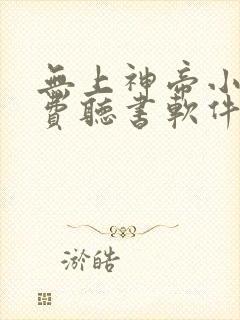 無上神帝小
費聽書軟件
淤皓